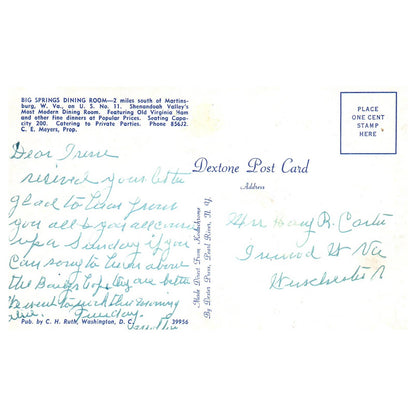 BIG SPRINGS DINING ROOM—2 miles south of Martins-
burg, W. Va., on U. S. No. 11. Shenandoah Valley's
Most Modern Dining Room. Featuring Old Virginia Ham
and other fine dinners at Popular Prices. Seating Capa-
city 200. Catering to Private Parties. Phone 856J2.
C. E. Meyers, Prop.
Dear Irene
recived your letter
glad to hear from
you all & you all come
up a Sunday if you
can sorry to hear about
the
Tuesday.
Pub. by C. H. Ruth, Washington, D. C. 39956
Made Direct From Kodachrome
By Dexter Press, Pearl River, N. Y.
Dextone Post Card
Address
PLACE
ONE CENT
STAMP
HERE
Mrs Harry R. Carter
Va
Winchester